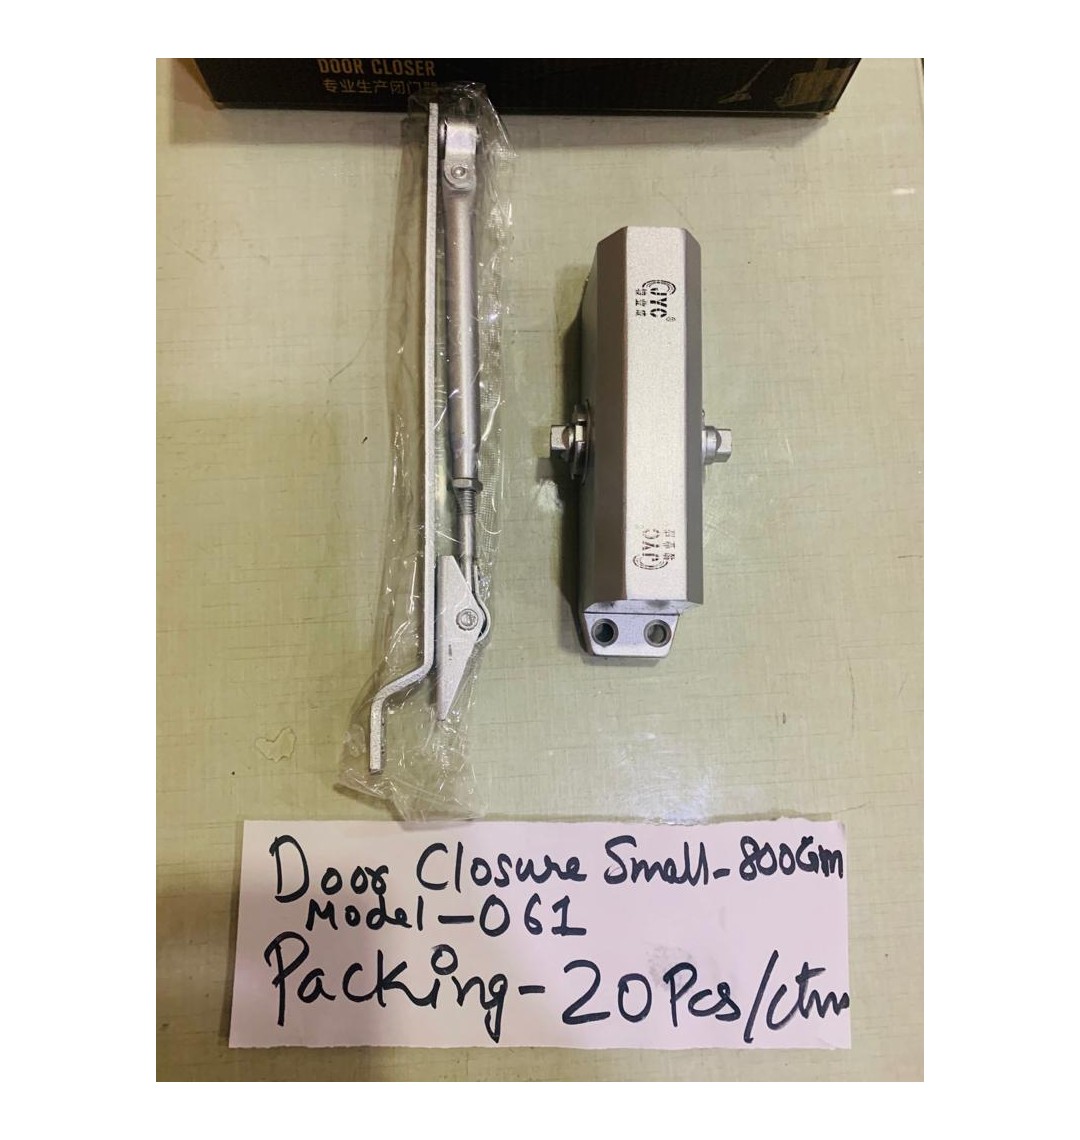 DOOR CLOSER
专业生产闭门器
JYC
JYC
Door Closure Small-800Gm
Model-061
Packing-20Pcs/ctn